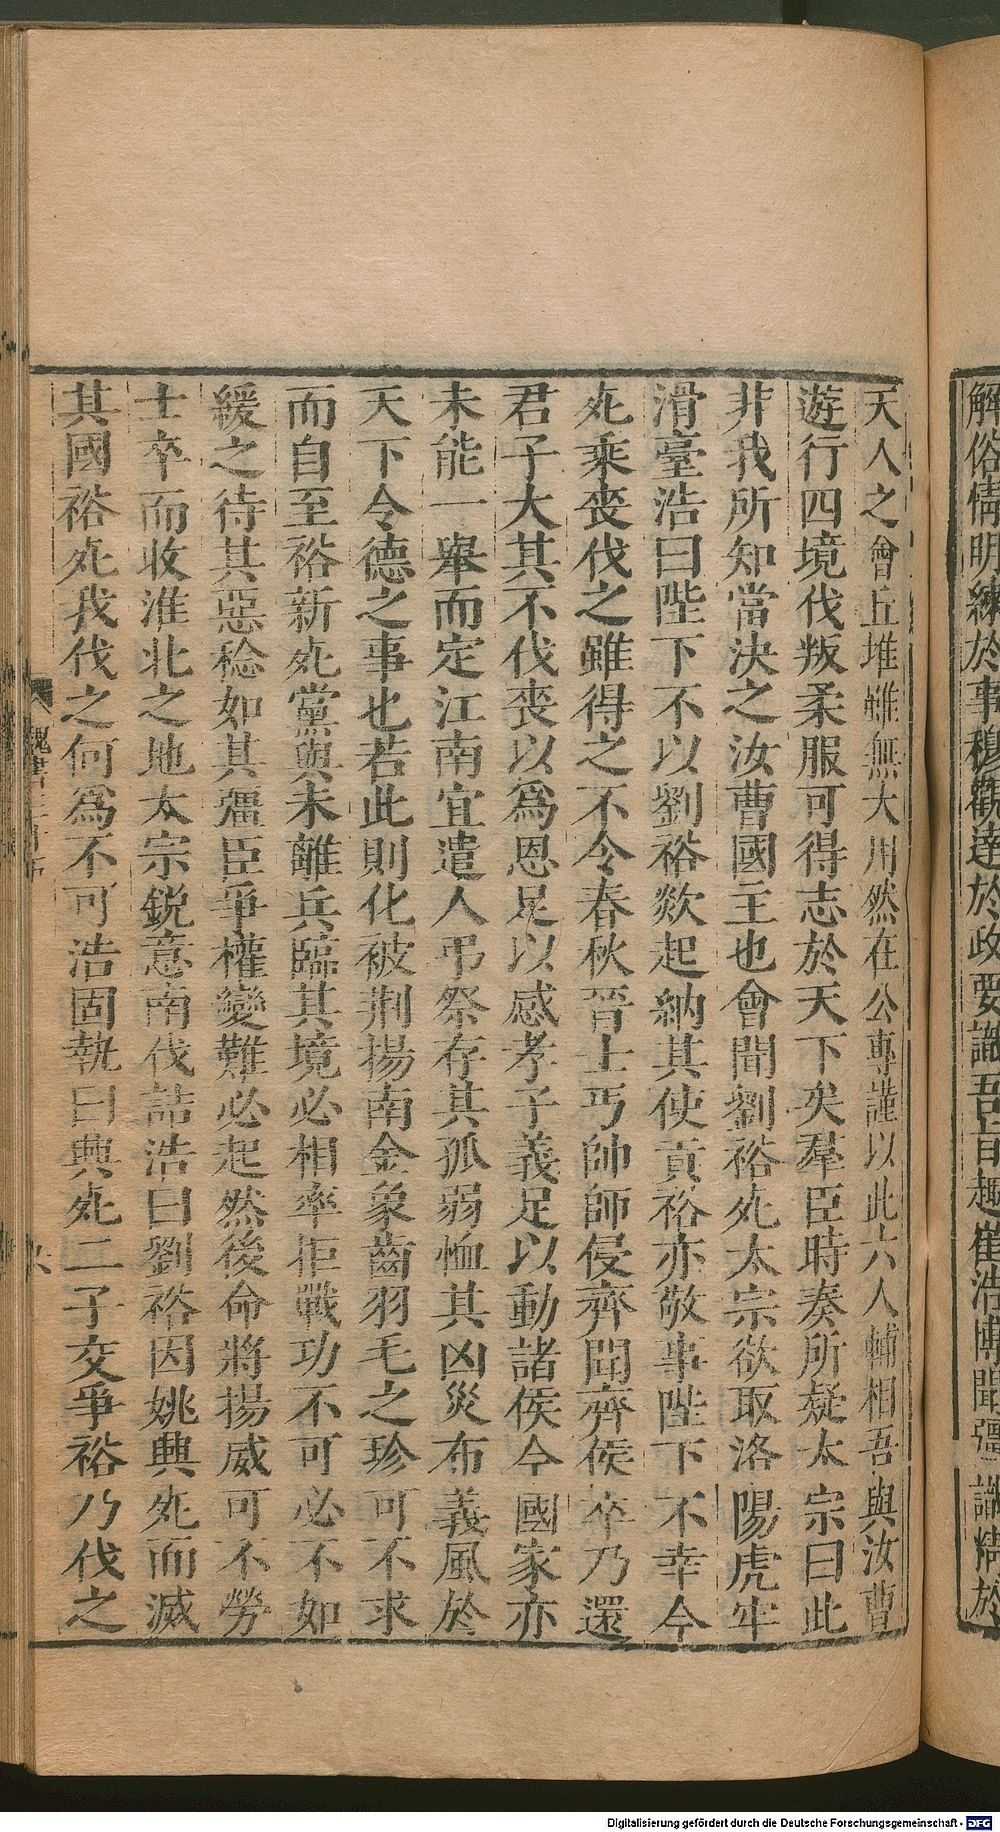 解俗情明練於事穆觀達於政要識吾旨趣崔浩博聞彊識精於
天人之會丘堆雖無大用然在公專謹以此六人輔相吾與汝曹
遊行四境伐叛柔服可得志於天下矣羣臣時奏所疑太宗曰此
非我所知當決之汝曹國主也會聞劉裕死太宗欲取洛陽虎牢
滑臺浩曰陛下不以劉裕欻起納其使貢裕亦敬事陛下不幸今
死乘喪伐之雖得之不令春秋晉士丐帥師侵齊聞齊侯卒乃還
君子大其不伐喪以為恩足以感孝子義足以動諸侯今國家亦
未能一舉而定江南宜遣人弔祭存其孤弱恤其凶災布義風於
天下令德之事也若此則化被荆揚南金象齒羽毛之珍可不求
而自至裕新死黨與未離兵臨其境必相率拒戰功不可必不如
緩之待其惡稔如其彊臣爭權變難必起然後命將揚威可不勞
士卒而收淮北之地太宗銳意南伐詰浩曰劉裕因姚興死而滅
其國裕死我伐之何為不可浩固執曰興死二子交爭裕乃伐之
Digitalisierung gefördert durch die Deutsche Forschungsgemeinschaft - DFG